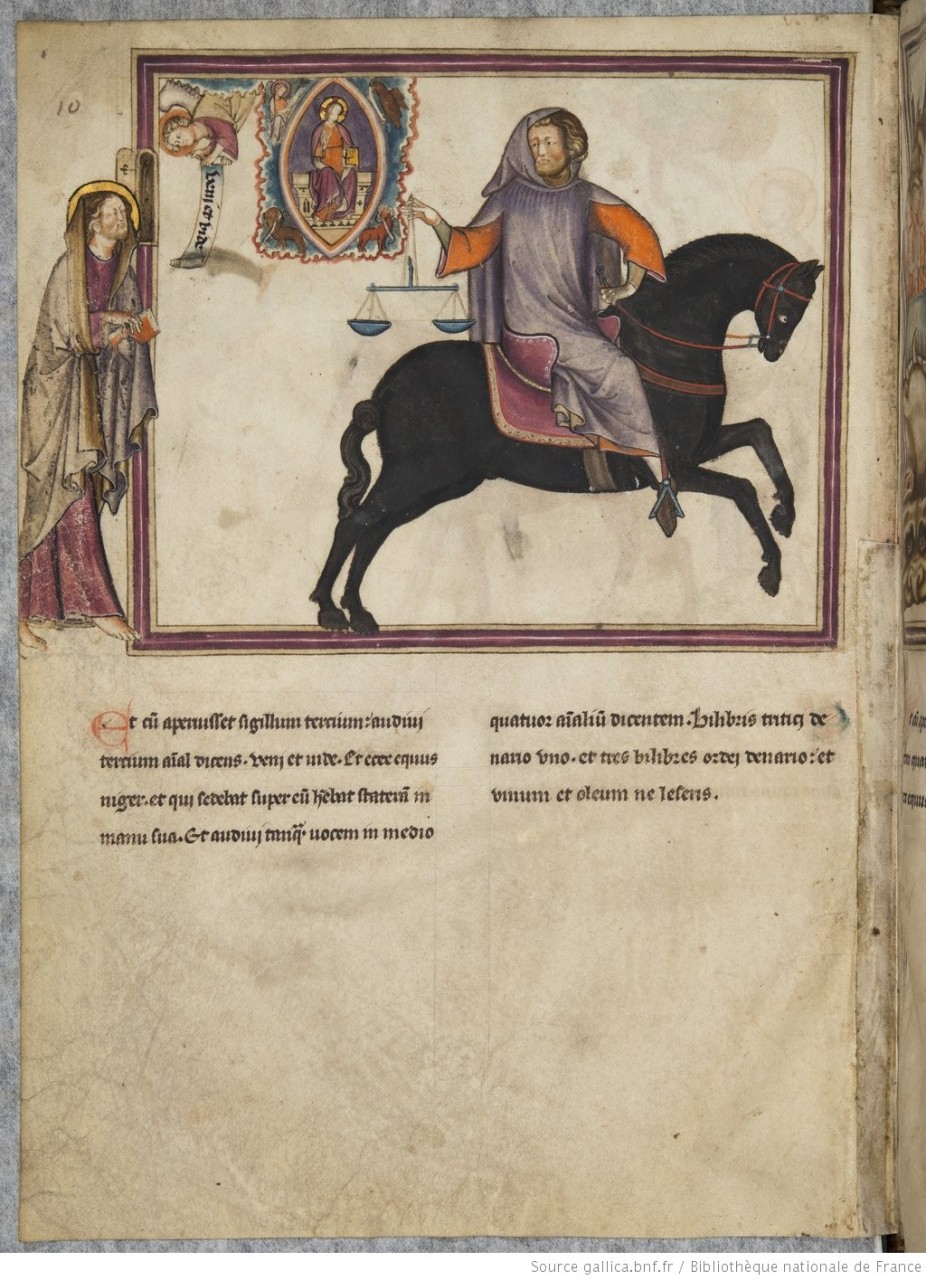 10
veni et vide
Et cū aperuisset sigillum tercium: audivi
tercium aīal dicens. veni et vide. Et ecce equus
niger. et qui sedebat super eū hēbat staterā in
manu sua. Et audivi tanq̄. vocem in medio
quatuor aīaliū dicentem. Bilibris tritici de
nario vno. et tres bilibres ordei denario: et
vinum et oleum ne leseris.
Source gallica.bnf.fr / Bibliothèque nationale de France